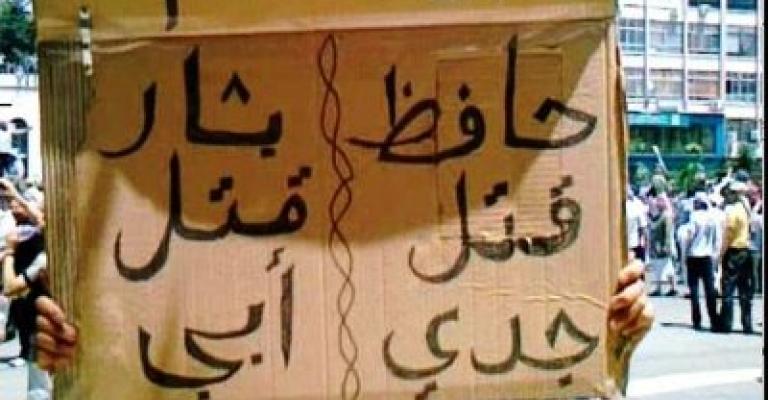 حافظ
قتل
جدي
بشار
قتل
أبي